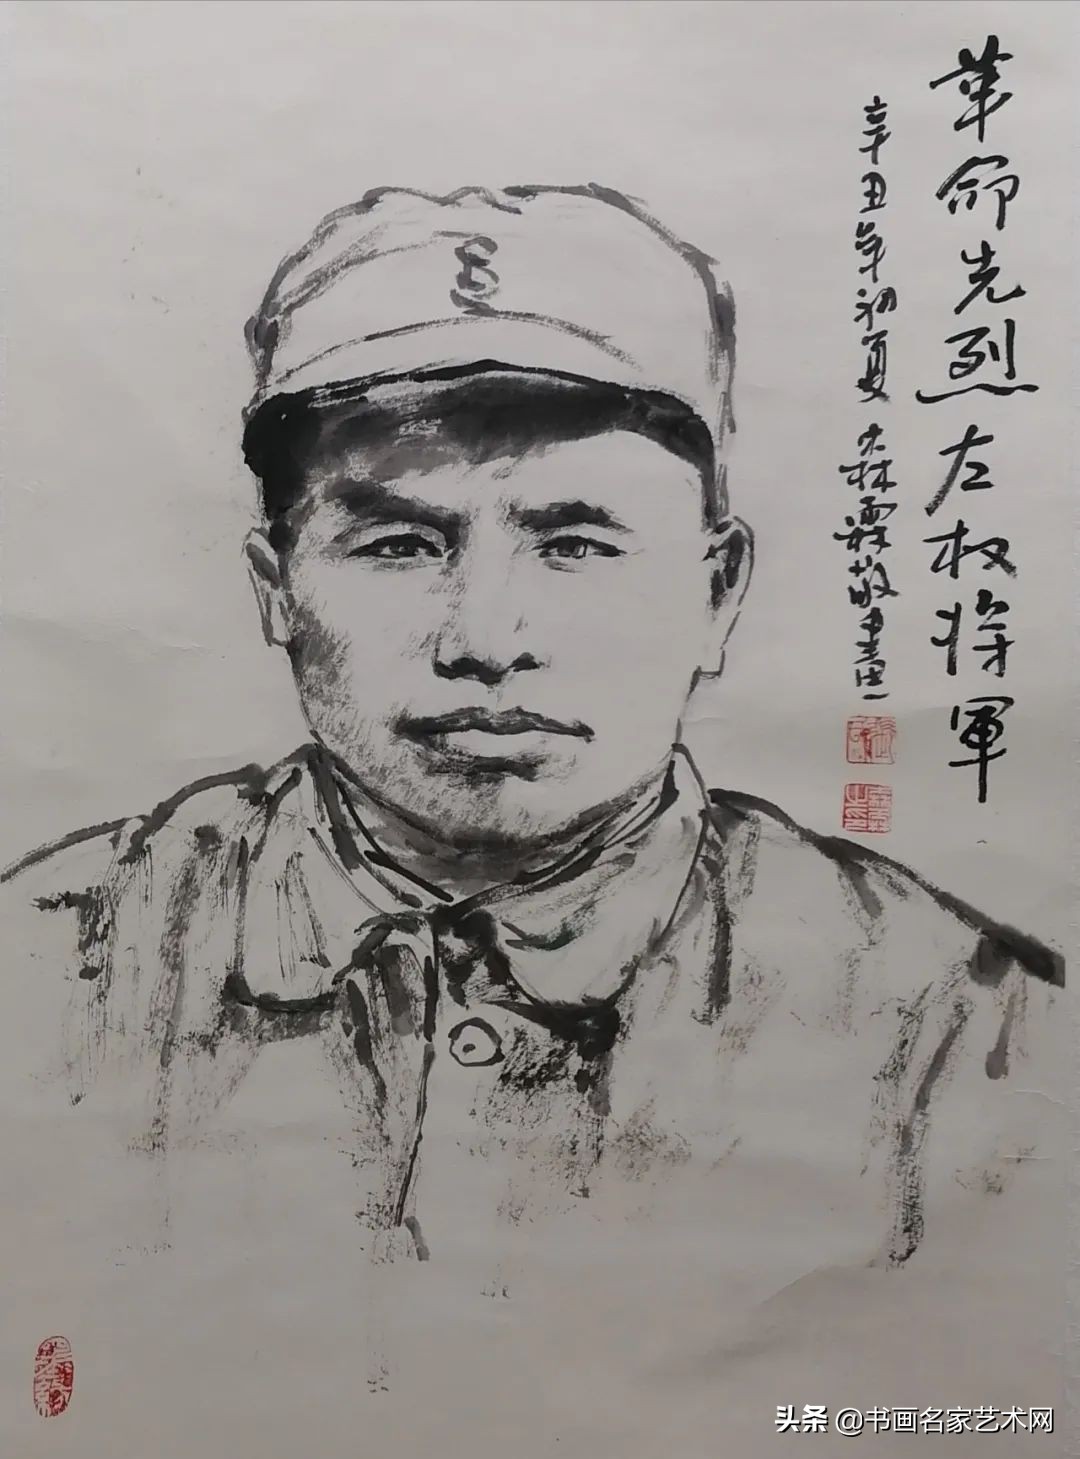 革命先烈左权将軍
辛丑年初夏森霖敬畫
头条 @书画名家艺术网